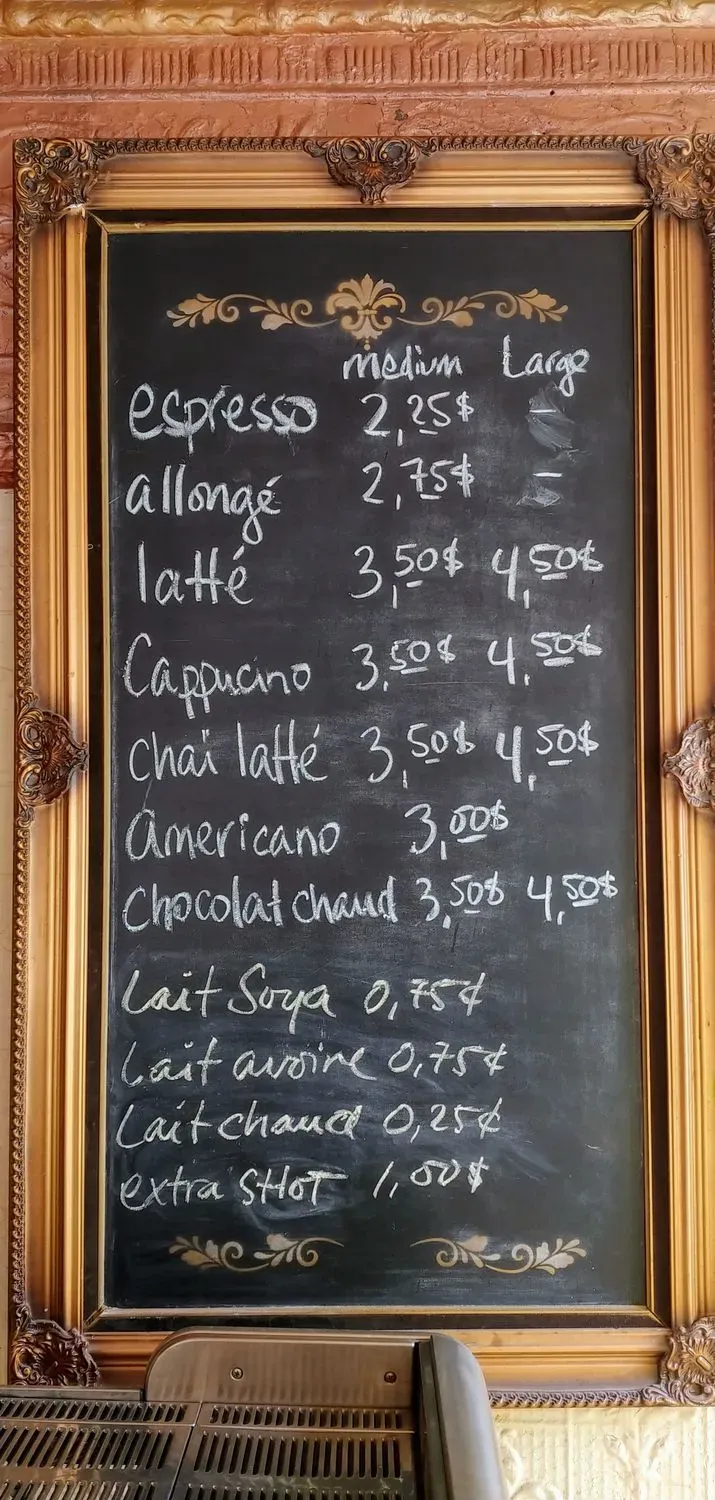 medium Large
espresso 2,25$ –
allongé 2,75$ –
latté 3,50$ 4,50$
Cappucino 3,50$ 4,50$
chaï latté 3,50$ 4,50$
Americano 3,00$
Chocolat chaud 3,50$ 4,50$
Lait Soya 0,75¢
Lait avoine 0,75¢
Lait chaud 0,25¢
extra SHOT 1,00$